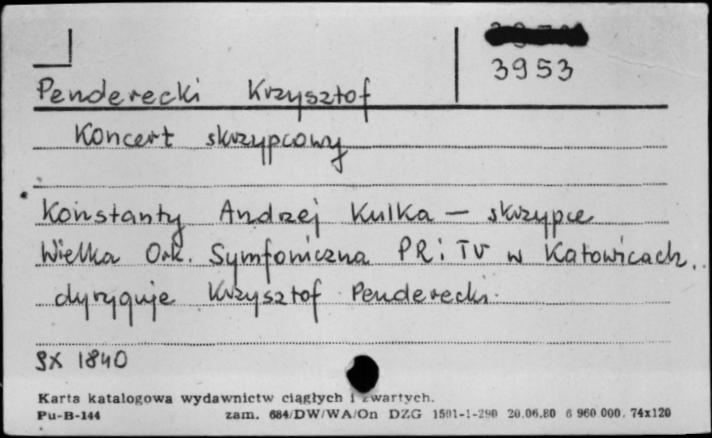 3953
Penderecki Krzysztof
Koncert skrzypcowy
Konstanty Andrzej Kulka — skrzypce
Wielka Ork. Symfoniczna PR i TV w Katowicach.
dyryguje Krzysztof Penderecki.
SX 1840
Karta katalogowa wydawnictw ciągłych i zwartych.
Pu-B-144 zam. 684/DW/WA/On DZG 1501-1-290 20.06.80 6 960 000. 74x120